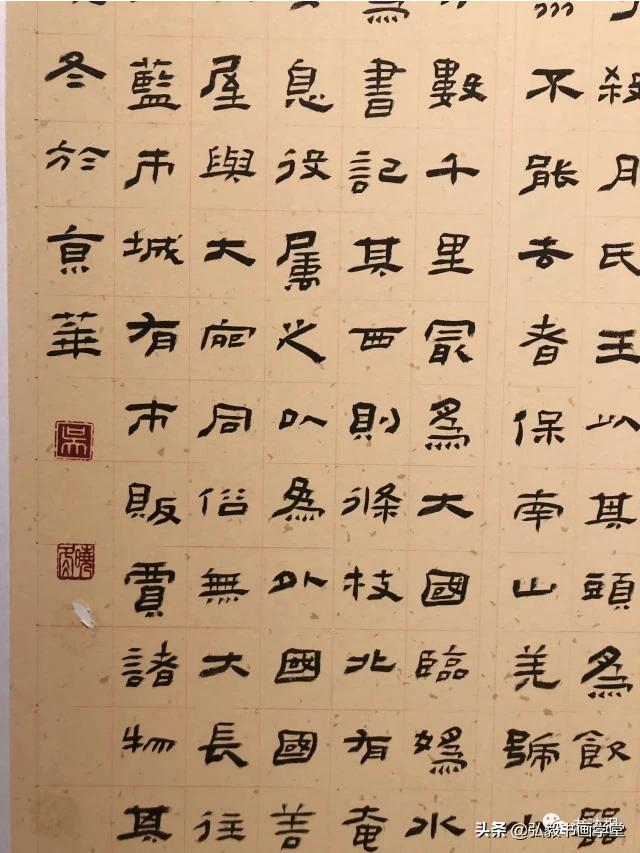 殺月氏王以其頭為飲器
不能去者保南山羌號小
數千里最為大國臨媯水
為書記其西則條枝北有奄
息役屬之以為外國國善
屋與大宛同俗無大長往
藍市城有市販賈諸物其
冬於京華
吳
头条 @弘毅书画学堂